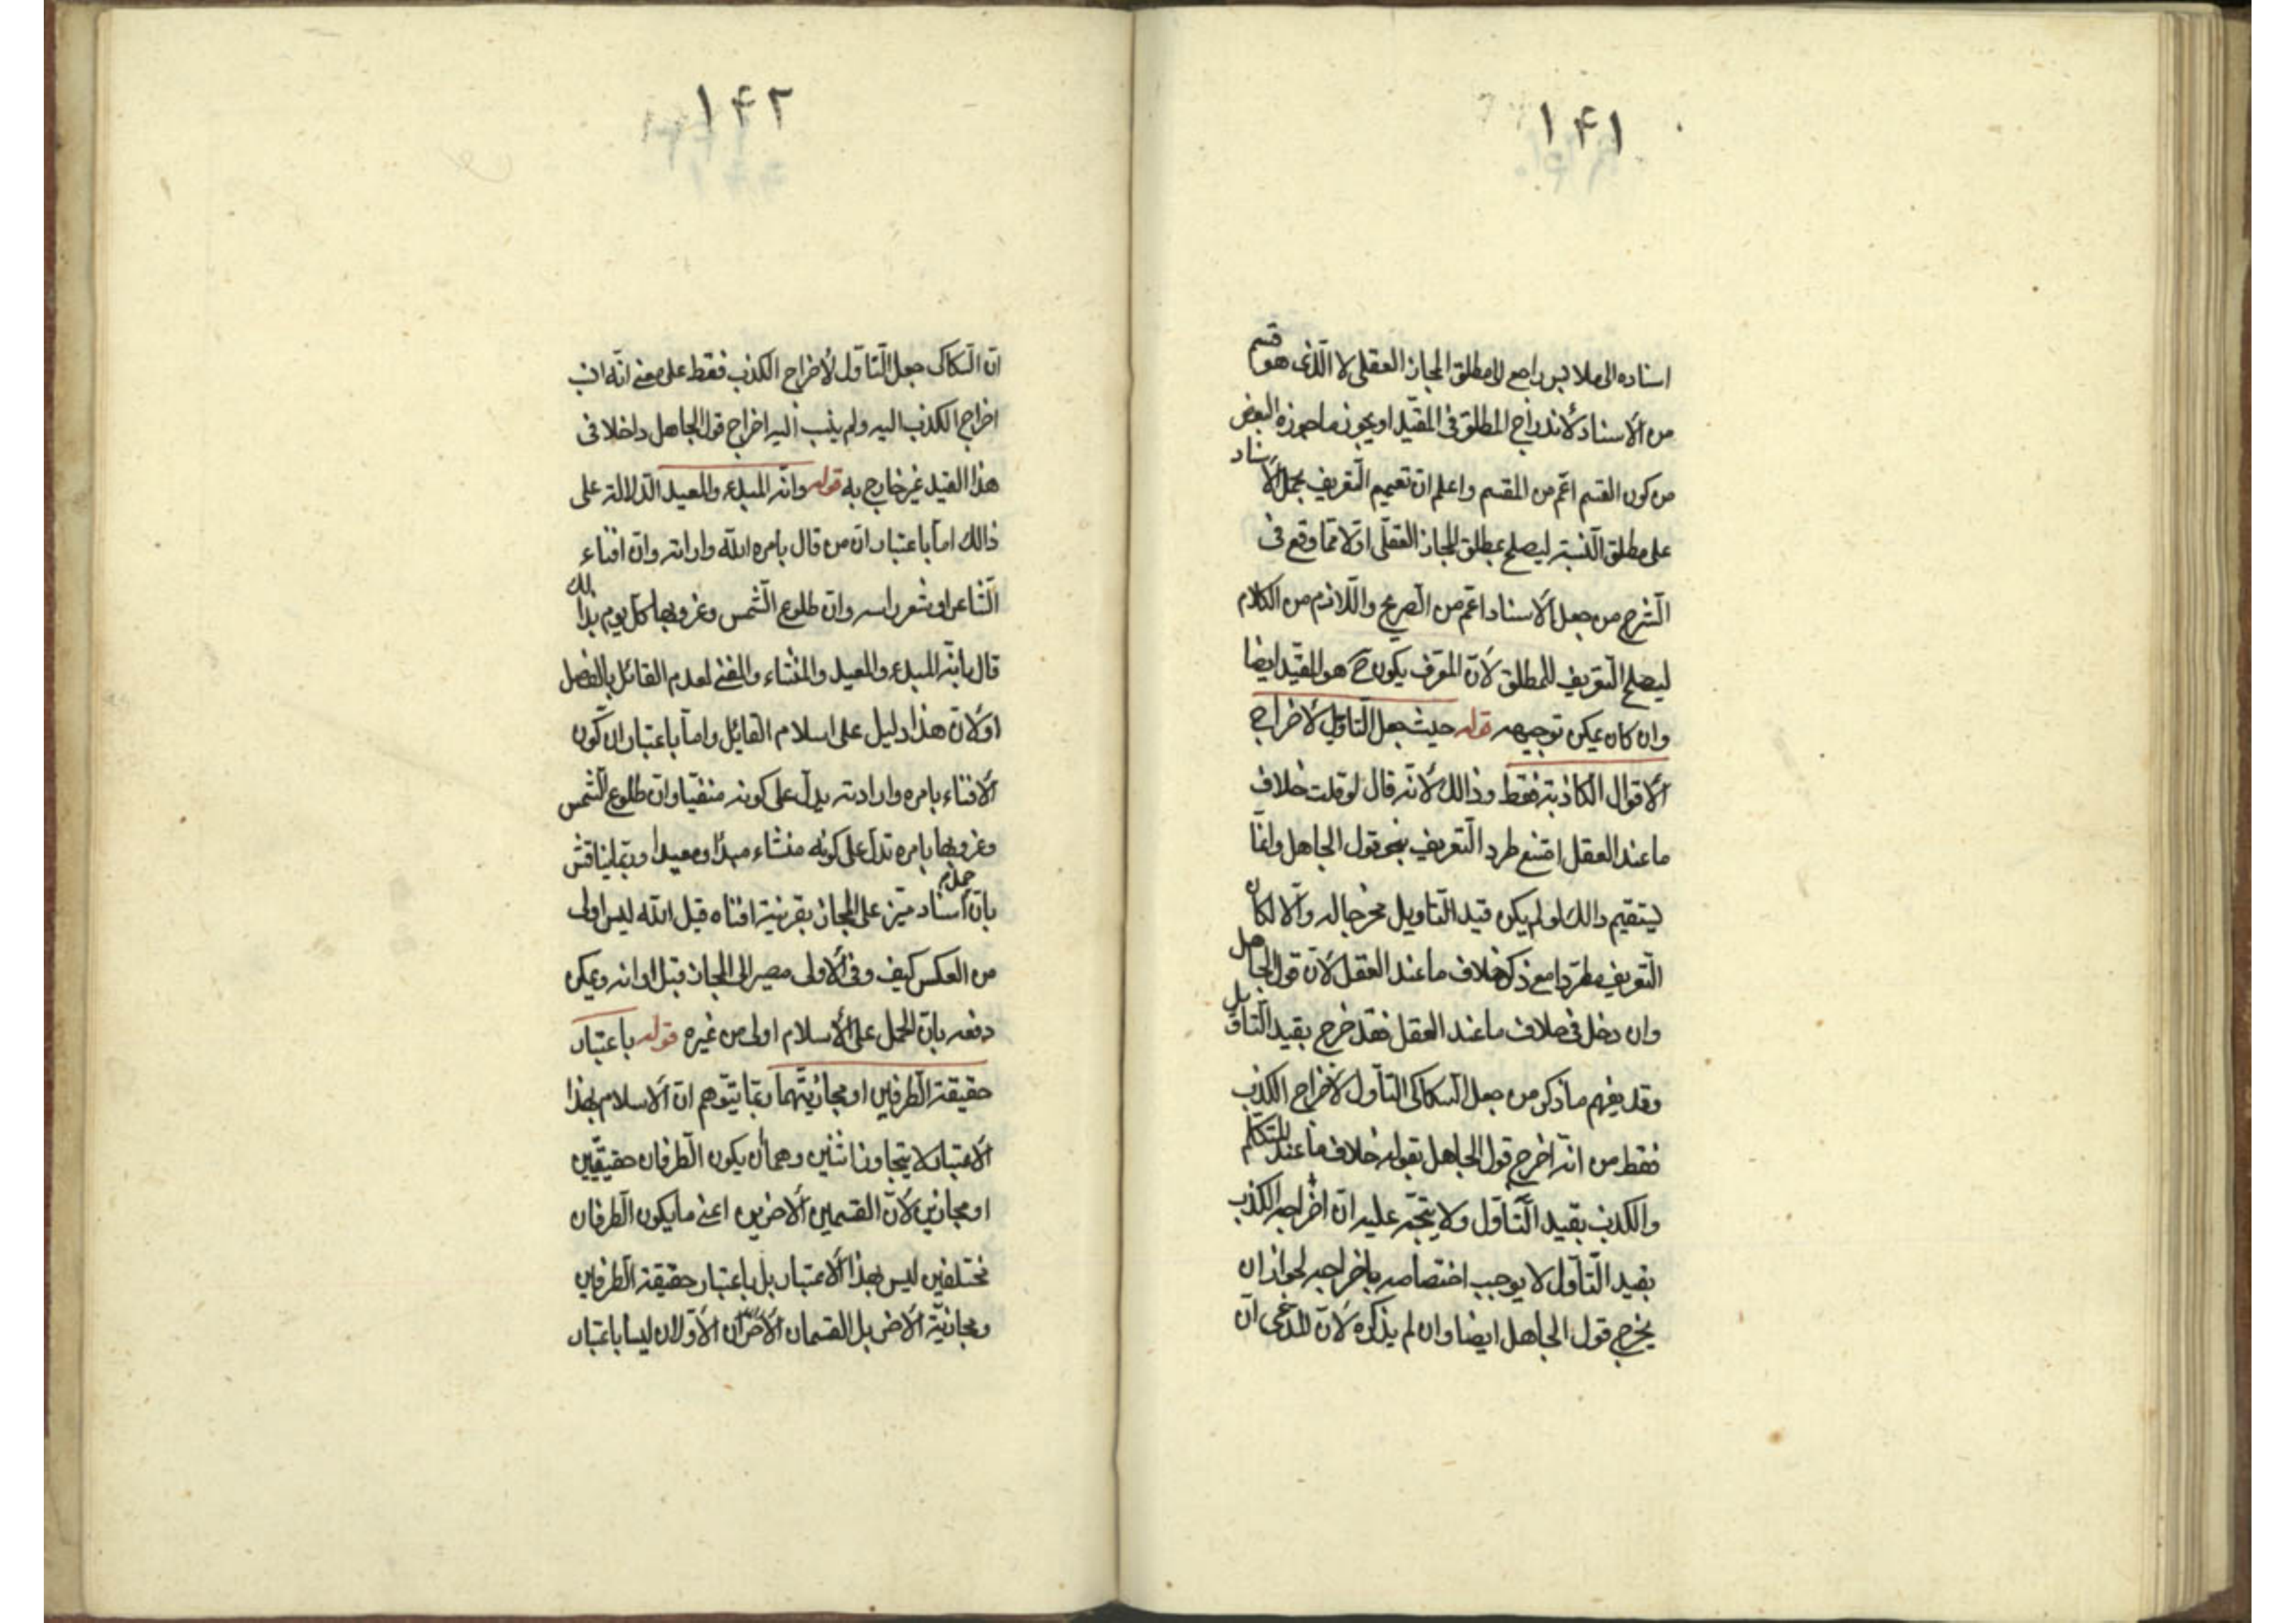 ۱۴۱
اسناده الى ملابس راجع الى مطلق المجاز العقلى لا الّذى هو قسم
من الاسناد لاندراج المطلق فى المقيّد او يجوز ما جوزه البعض
من كون القسم اعّم من المقسم واعلم انّ تعميم التّعريف بجعل الأسناد
على مطلق النّسبته ليصلح بمطلق المجاز العقلّى اوّلا ممّا وقع فى
الشّرح من جعل الاسناد اعّم من الصّريح والّلازم من الكلام
ليصلح التّعريف للمطلق لانّ المعّرف يكون ح هو المقيّد ايضا
وان كان يمكن توجيهه قوله حيث جعل التّاويل لاخراج
الاقوال الكاذبته فقط وذالك لانّه قال لو قلت خلاف
ما عند العقل امتنع طرد التّعريف بنحو قول الجاهل وانمّا
ليتقيم ذالك لو لم يكن قيد التّاويل مخرجا له والّا لكان
التّعريف مطّردا مع ذكر خلاف ما عند العقل لانّ قول الجاهل
وان دخل فى خلاف ما عند العقل فقد خرج بقيد التّاويل
وقد يفهم ما ذكر من جعل السّكاكى التّأول لأخراج الكذب
فقط من انّه اخرج قول الجاهل بقوله خلاف ما عند المتكلّم
والكذب بقيد التّأوّل ولا يتجّه عليه انّ اخراجه الكذب
بقيد التّأوّل لا يوجب اختصاصه باخراجه لجواز ان
يخرج قول الجاهل ايضا وان لم يذكره لانّ المدّعى انّ
۱۴۲
انّ السّكاكى جعل التّاوّل لأخراج الكذب فقط على معنے انّه انب
اخراج الكذب اليه ولم ينب اليه اخراج قول الجاهل داخلا فى
هذا القيد غير خارج به قوله وانّه المبدء والمعيد الدّلالته على
ذالك امّا باعتبار انّ من قال بامره الله وارادته وانّ افناء
الشّاعر او شعر راسه وانّ طلوع الشّمس وغروبها كلّ يوم بذالك
قال بانّه المبدء والمعيد والمنشاء والمفنے لعدم القائل بالفصل
اولانّ هذا دليل على اسلام القائل وامّا باعتبار ان كون
الافناء بامره وارادته يدلّ على كونه منفيّا وانّ طلوع الشّمس
وغروبها بامره تدلّ على كونه منشاء مبدًا ومعيدا وربّما يناقش
بانّ حمل اسناد ميّز على المجاز بقرينته افناه قيل الله ليس اولى
من العكس كيف وفى الاولى مصير الى المجاز قبل اوانه ويمكن
دفعه بانّ الحمل على الأسلام اولى من غيره قوله باعتبار
حقيقته الطّرفين او مجازيّتهما ربّما يتوّهم انّ الاسلام بهذا
الاعتبار لا يتجاوز اثنين وهما أن يكون الطّرفان حقيقيّين
او مجازين لانّ القسمين الاخرين اعنے ما يكون الطّرفان
مختلفين ليس بهذا الاعتبار بل باعتبار حقيقته الطّرفين
ومجازيّة الاخر بل القسمان الأخران الأوّلان ليسا باعتبار